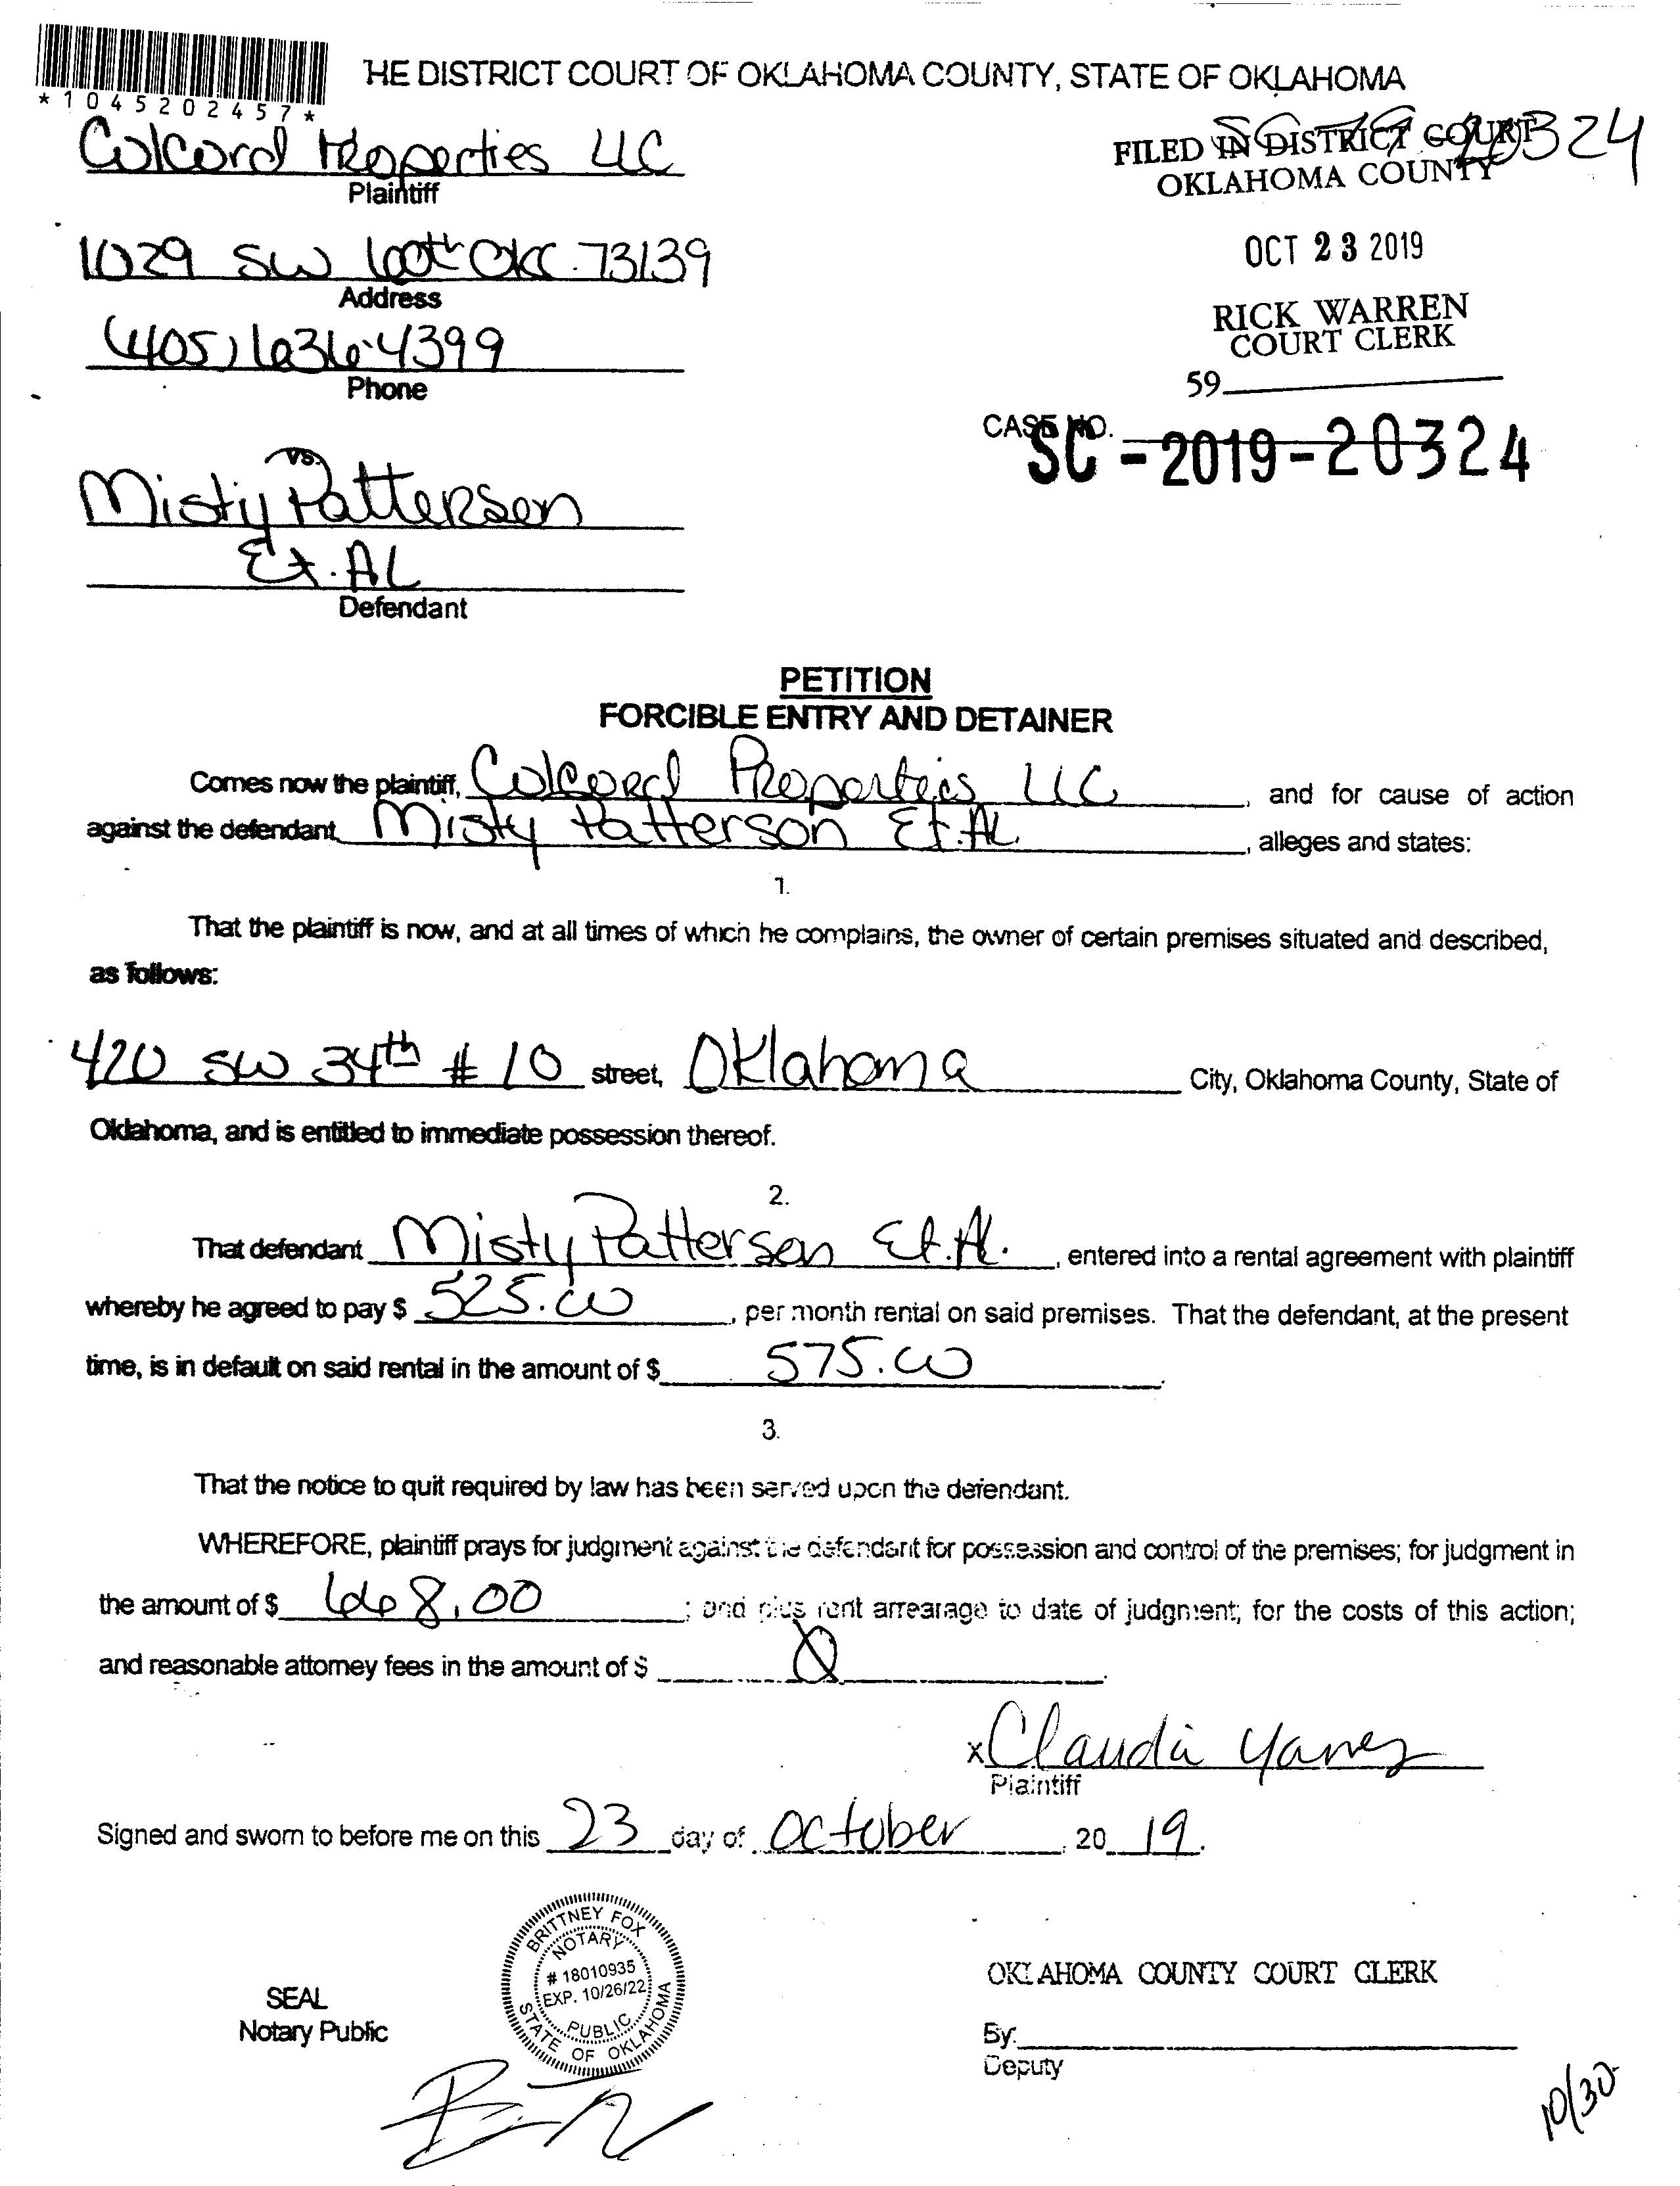 HE DISTRICT COURT OF OKLAHOMA COUNTY, STATE OF OKLAHOMA
*1045202457*
Colcord Properties LLC
Plaintiff
SC-19-20324
FILED IN DISTRICT COURT
OKLAHOMA COUNTY
1029 SW 100th OKC. 73139
Address
OCT 23 2019
(405) 636-4399
Phone
RICK WARREN
COURT CLERK
59
CASE NO.
SC-2019-20324
vs.
Misty Patterson
Et. AL
Defendant
PETITION
FORCIBLE ENTRY AND DETAINER
Comes now the plaintiff, Colcord Properties LLC, and for cause of action
against the defendant Misty Patterson Et. AL, alleges and states:
1.
That the plaintiff is now, and at all times of which he complains, the owner of certain premises situated and described,
as follows:
420 SW 34th # 10 street, Oklahoma City, Oklahoma County, State of
Oklahoma, and is entitled to immediate possession thereof.
2.
That defendant Misty Patterson Et. Al., entered into a rental agreement with plaintiff
whereby he agreed to pay $ 525.00, per month rental on said premises. That the defendant, at the present
time, is in default on said rental in the amount of $ 575.00.
3.
That the notice to quit required by law has been served upon the defendant.
WHEREFORE, plaintiff prays for judgment against the defendant for possession and control of the premises; for judgment in
the amount of $ 668.00; and plus rent arrearage to date of judgment; for the costs of this action;
and reasonable attorney fees in the amount of $ 0.
x Claudia Yanez
Plaintiff
Signed and sworn to before me on this 23 day of October, 20 19.
BRITTNEY FOX
NOTARY
# 18010935
EXP. 10/26/22
PUBLIC
STATE OF OKLAHOMA
SEAL
Notary Public
OKLAHOMA COUNTY COURT CLERK
By.
Deputy
10/30